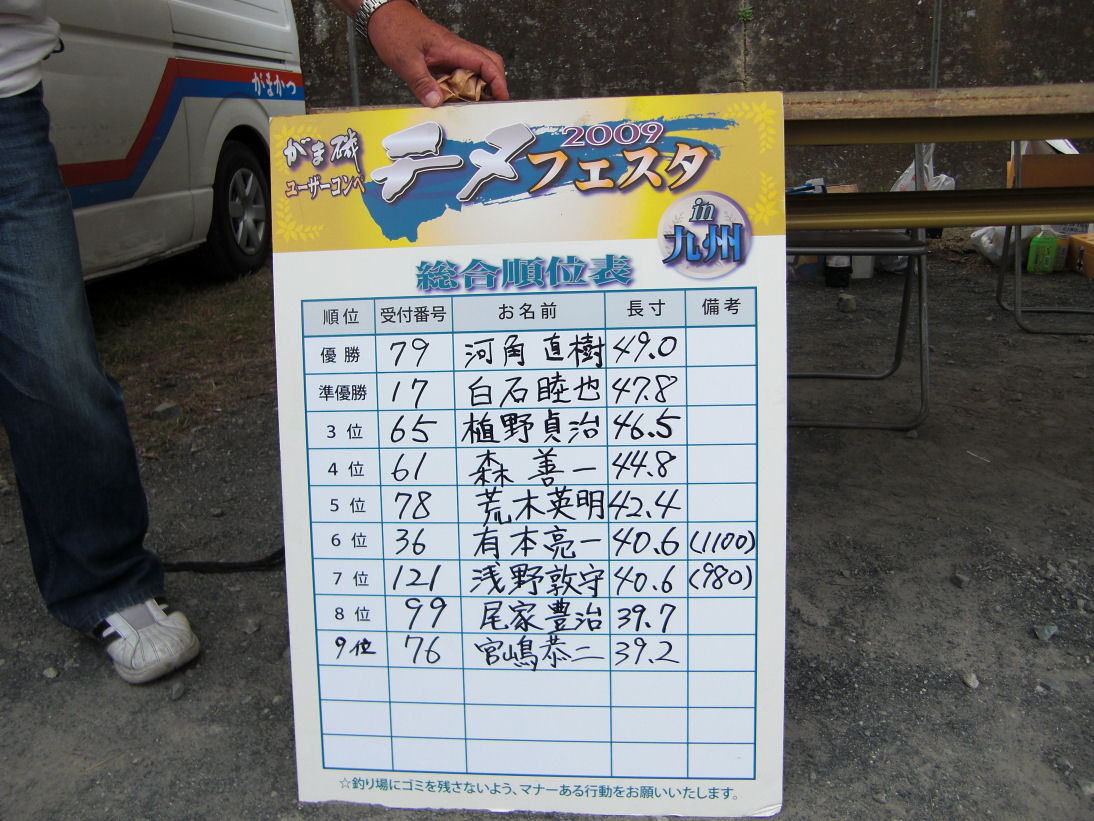 がまかつ
がま磯
ユーザーコンペ
テメフェスタ
2009
in
九州
総合順位表
順位 受付番号 お名前 長寸 備考
優勝 79 河角直樹 49.0
準優勝 17 白石睦也 47.8
3位 65 植野貞治 46.5
4位 61 森善一 44.8
5位 78 荒木英明 42.4
6位 36 有本亮一 40.6 (1100)
7位 121 浅野敦守 40.6 (980)
8位 99 尾家豊治 39.7
9位 76 宮嶋恭二 39.2
☆釣り場にゴミを残さないよう、マナーある行動をお願いいたします。